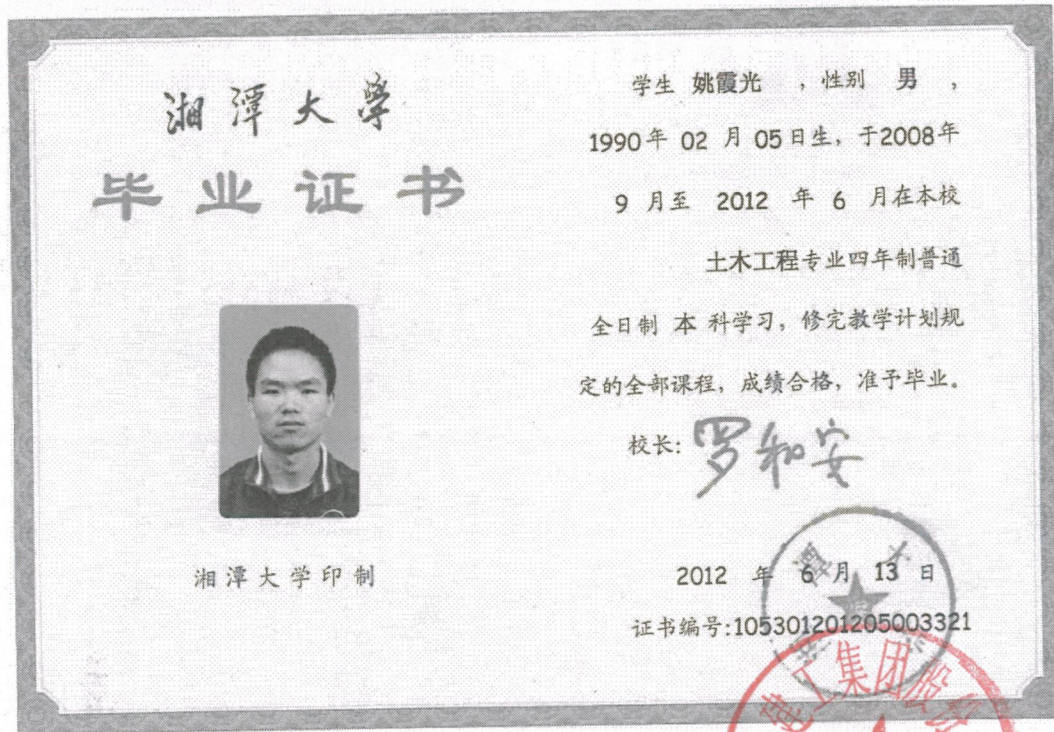 湘潭大学
毕业证书
湘潭大学印制
学生 姚霞光 ，性别 男 ，
1990年 02 月 05日生，于2008年
9 月至 2012 年 6 月在本校
土木工程专业四年制普通
全日制 本 科学习，修完教学计划规
定的全部课程，成绩合格，准予毕业。
校长：罗和安
2012 年 6 月 13 日
证书编号：105301201205003321
湘潭大学
电工集团股份